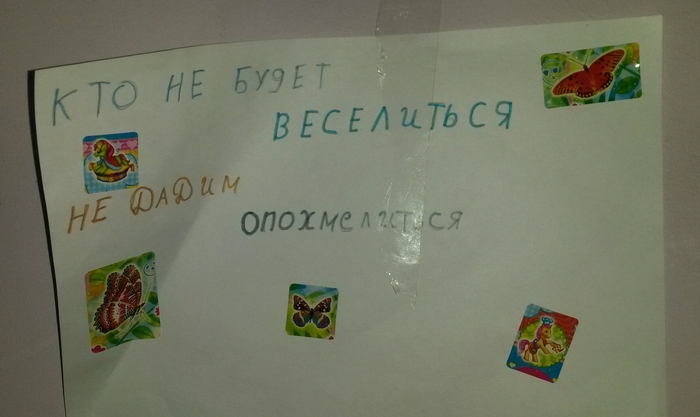 КТО НЕ БУДЕТ
ВЕСЕЛИТЬСЯ
НЕ ДАДИМ
ОПОХМЕЛИТЬСЯ